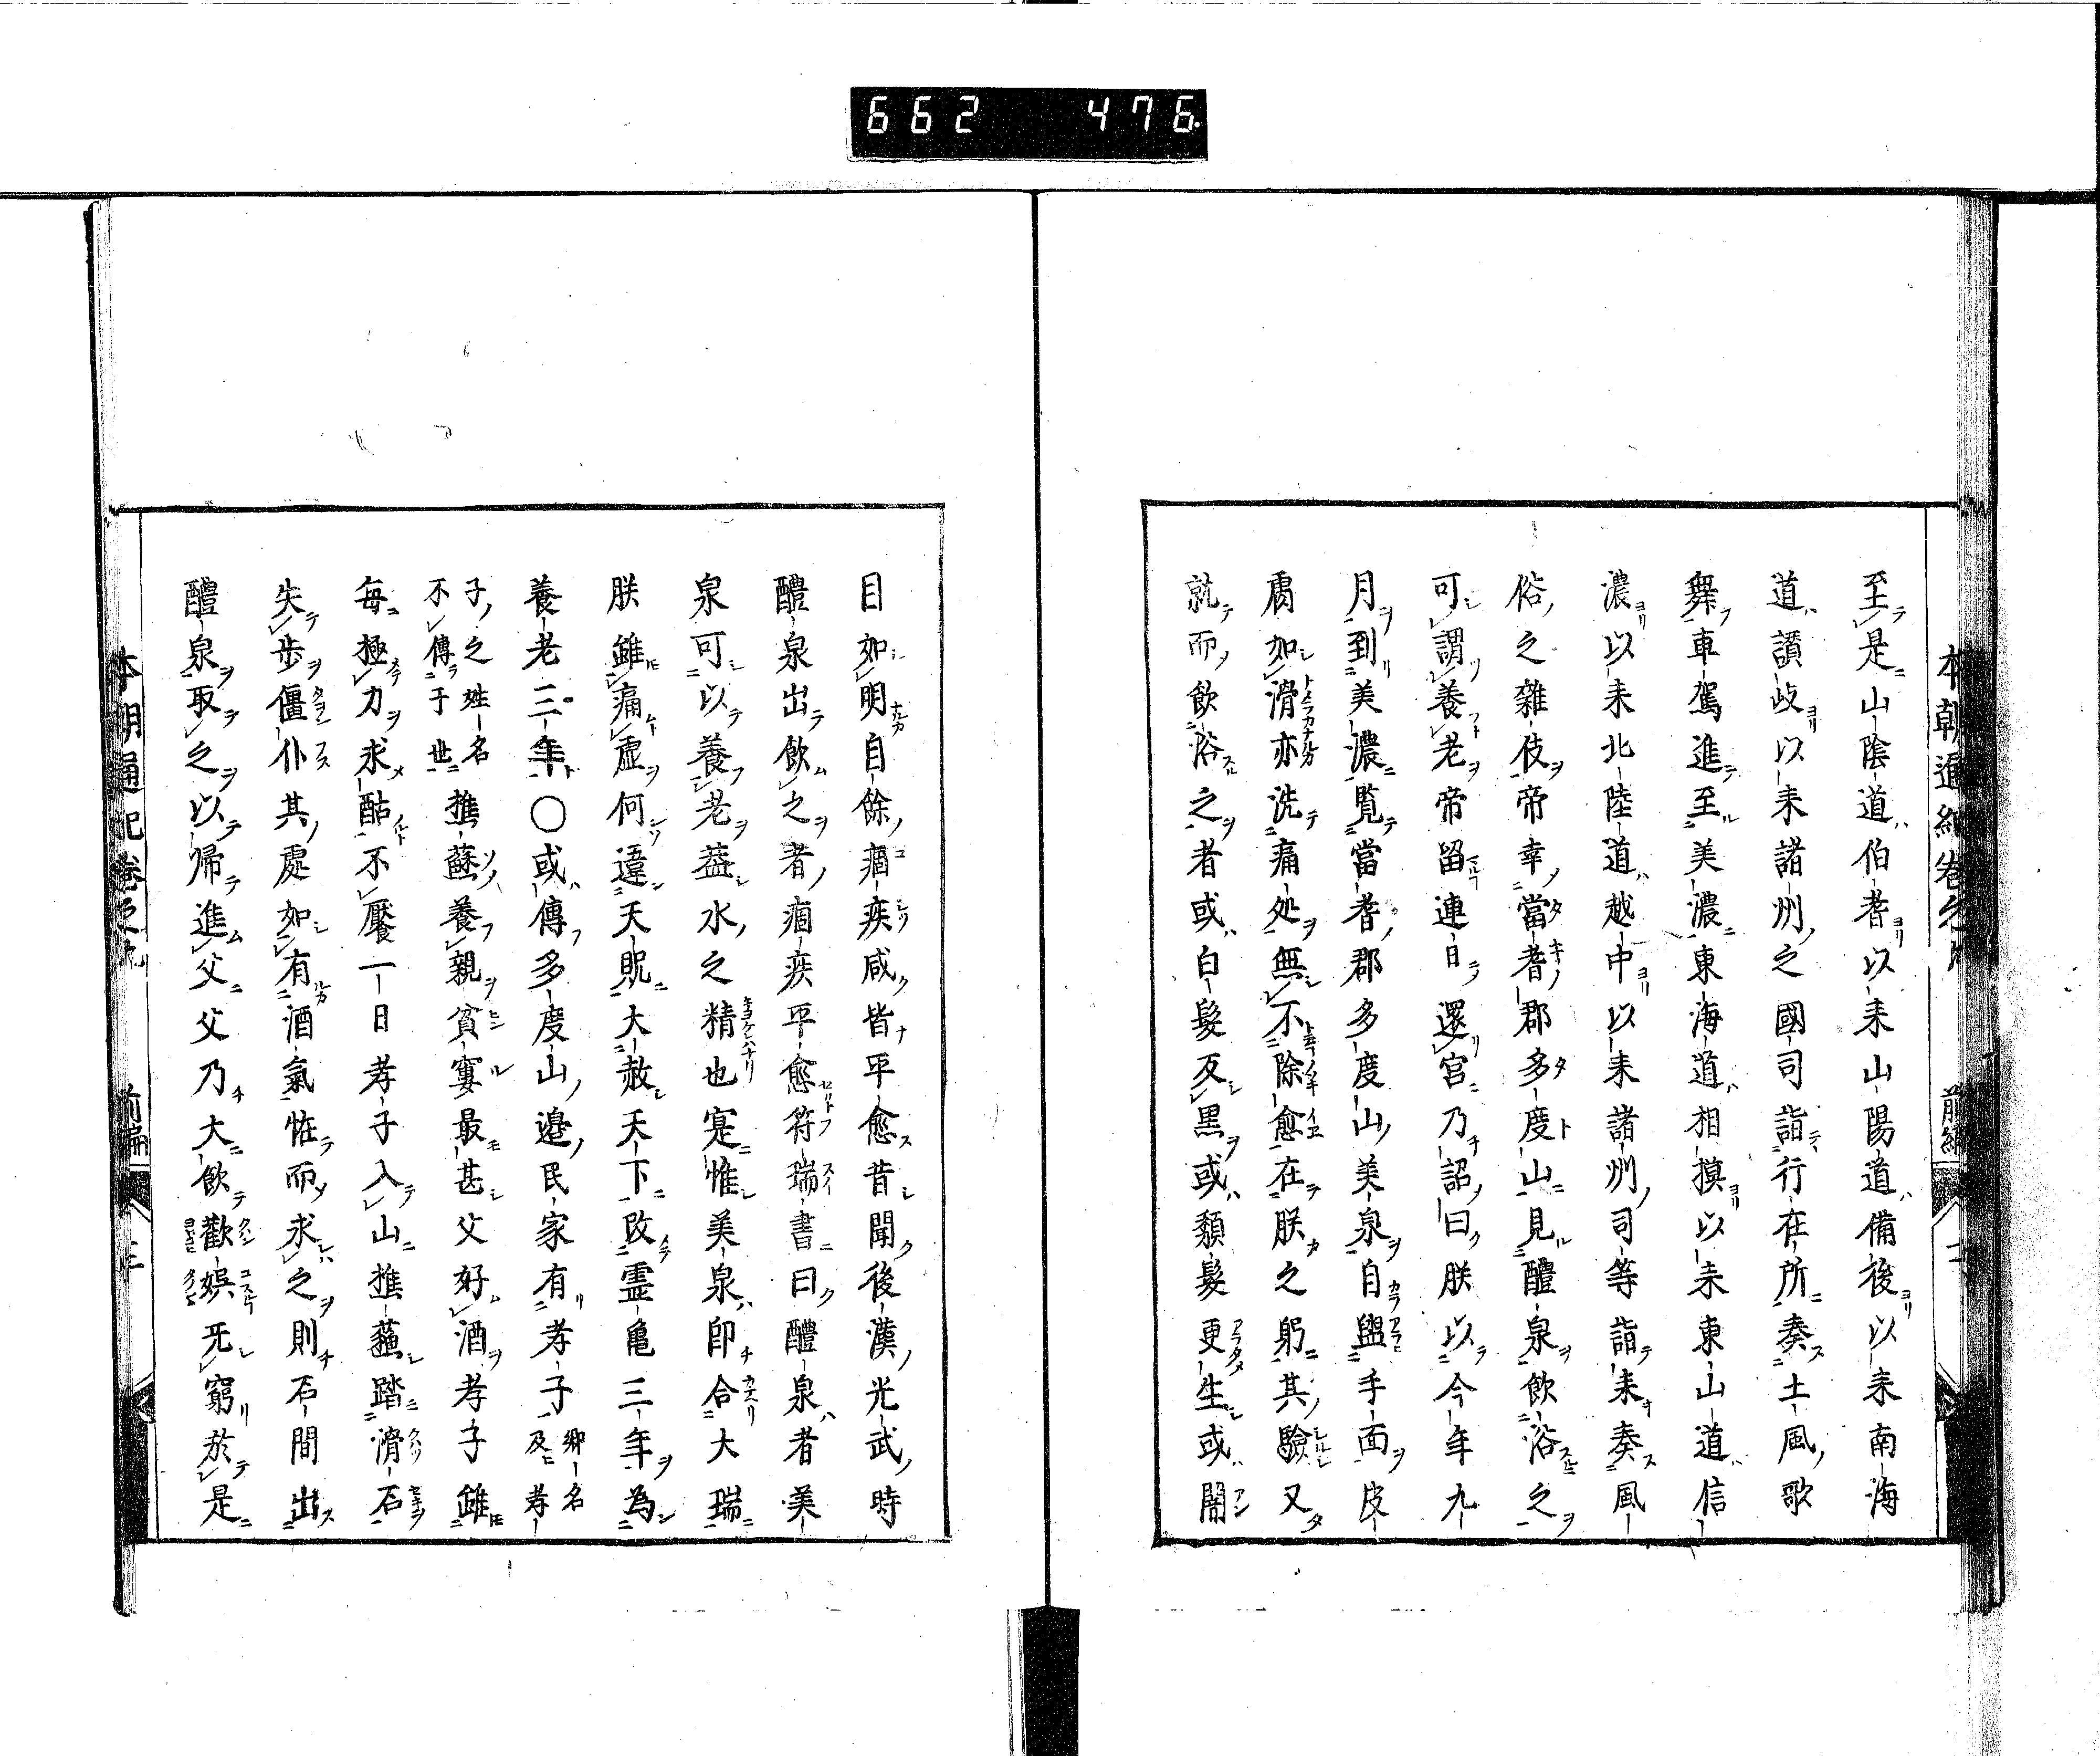 662 476
至是山陰道伯耆以来山陽道備後以来南海
道讃岐以来諸州之國司詣行在所奏土風歌
舞車駕進至美濃東海道相摸以来東山道信
濃以来北陸道越中以来諸州司等詣来奏風
俗之雜伎帝幸當耆郡多度山見醴泉飲浴之
可謂養老帝留連日還宮乃詔曰朕以今年九
月到美濃覧當耆郡多度山美泉自盥手面皮
膚如滑亦洗痛処無不除愈在朕之躬其驗又
就而飲浴之者或白髮反黒或頽髮更生或闇
目如明自餘痼疾咸皆平愈昔聞後漢光武時
醴泉出飲之者痼疾平愈符瑞書曰醴泉者美
泉可以養老盖水之精也寔惟美泉即合大瑞
朕雖痛虚何違天貺大赦天下改霊亀三年為
養老三年○或傳多度山邉民家有孝子郷名及孝
子之姓名不傳于世樵蘇養親貧寠最甚父好酒孝子雖
毎極力求酤不饜一日孝子入山樵蘓踏滑石
失歩僵仆其處如有酒氣恠而求之則石間出
醴泉取之以帰進父父乃大飲歡娯无窮於是